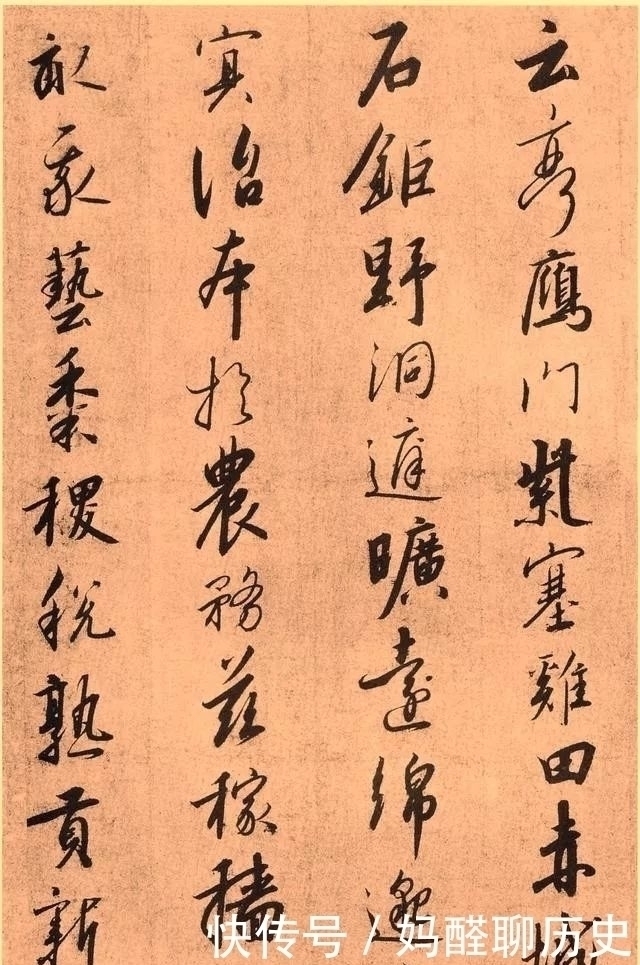 云亭鴈門紫塞雞田赤城
石鉅野洞庭曠遠綿邈
冥治本於農務茲稼穡
畝我藝黍稷稅熟貢新
快传号/妈醒聊历史